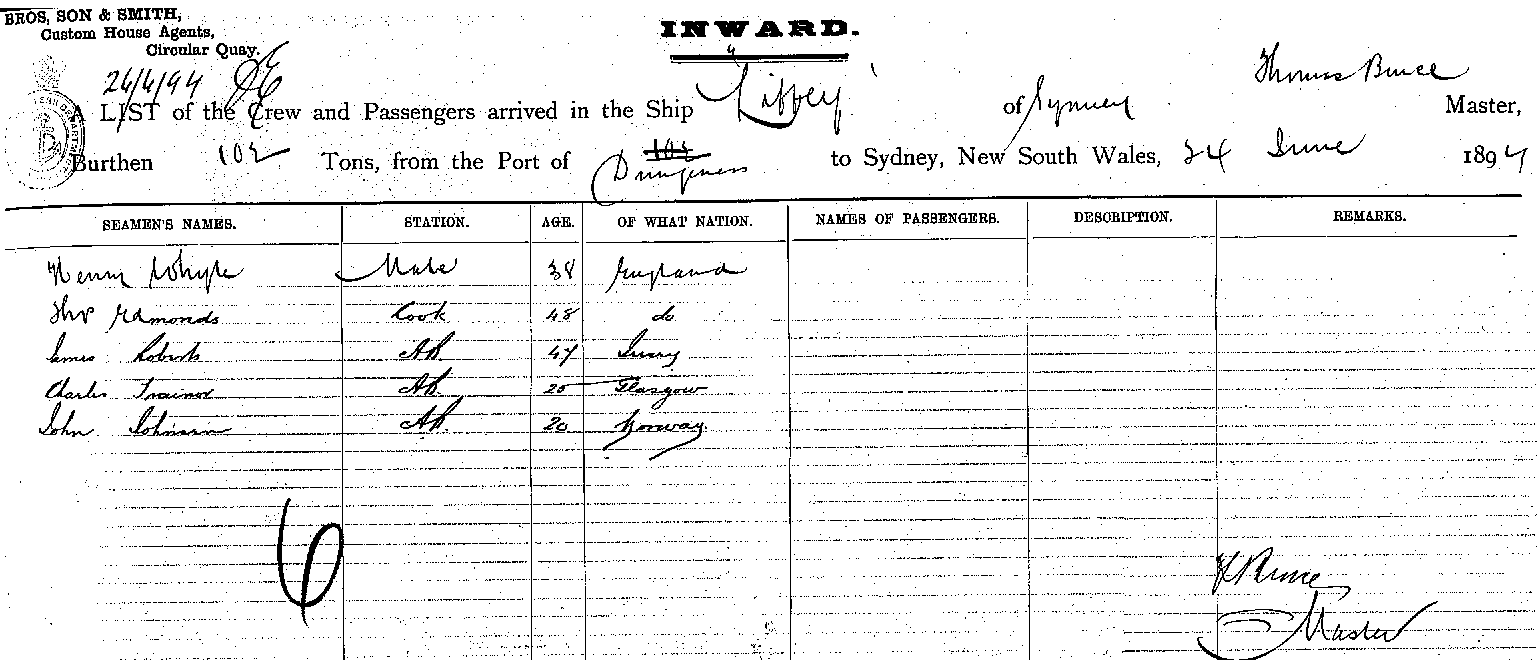 BROS, SON & SMITH,
Custom House Agents,
Circular Quay.
INWARD.
Thomas Bruce
A LIST of the Crew and Passengers arrived in the Ship "Liffey" of Sydney Master,
Burthen 102 Tons, from the Port of Dungeness to Sydney, New South Wales, 24 June 1894
SEAMEN'S NAMES. STATION. AGE. OF WHAT NATION. NAMES OF PASSENGERS. DESCRIPTION. REMARKS.
Henry Whyte Mate 38 England
Edmonds Cook 48 do
James Roberts AB 47
Charles Trainor AB 25 Glasgow
John Johnson AB 20 Norway
6
Bruce
Master